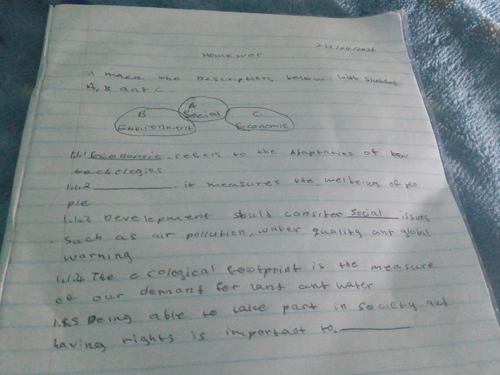 Homewor
1.1 match the Descriptions below with sketches
A, B ant C
A
Social
B
Enviroenment
C
Economic
1.1.1 Economic. refers to the Adaptation of new
techerlogies
1.1.2 ________. it measures the welbeing of peo
ple
1.1.3 Development sould consiter Social issues
such as air pollution, water quality ant global
warning
1.1.4 The ecological footprint is the measure
of our demant for lant ant water
1.1.5 Being able to take part in society ant
having rights is important to ________